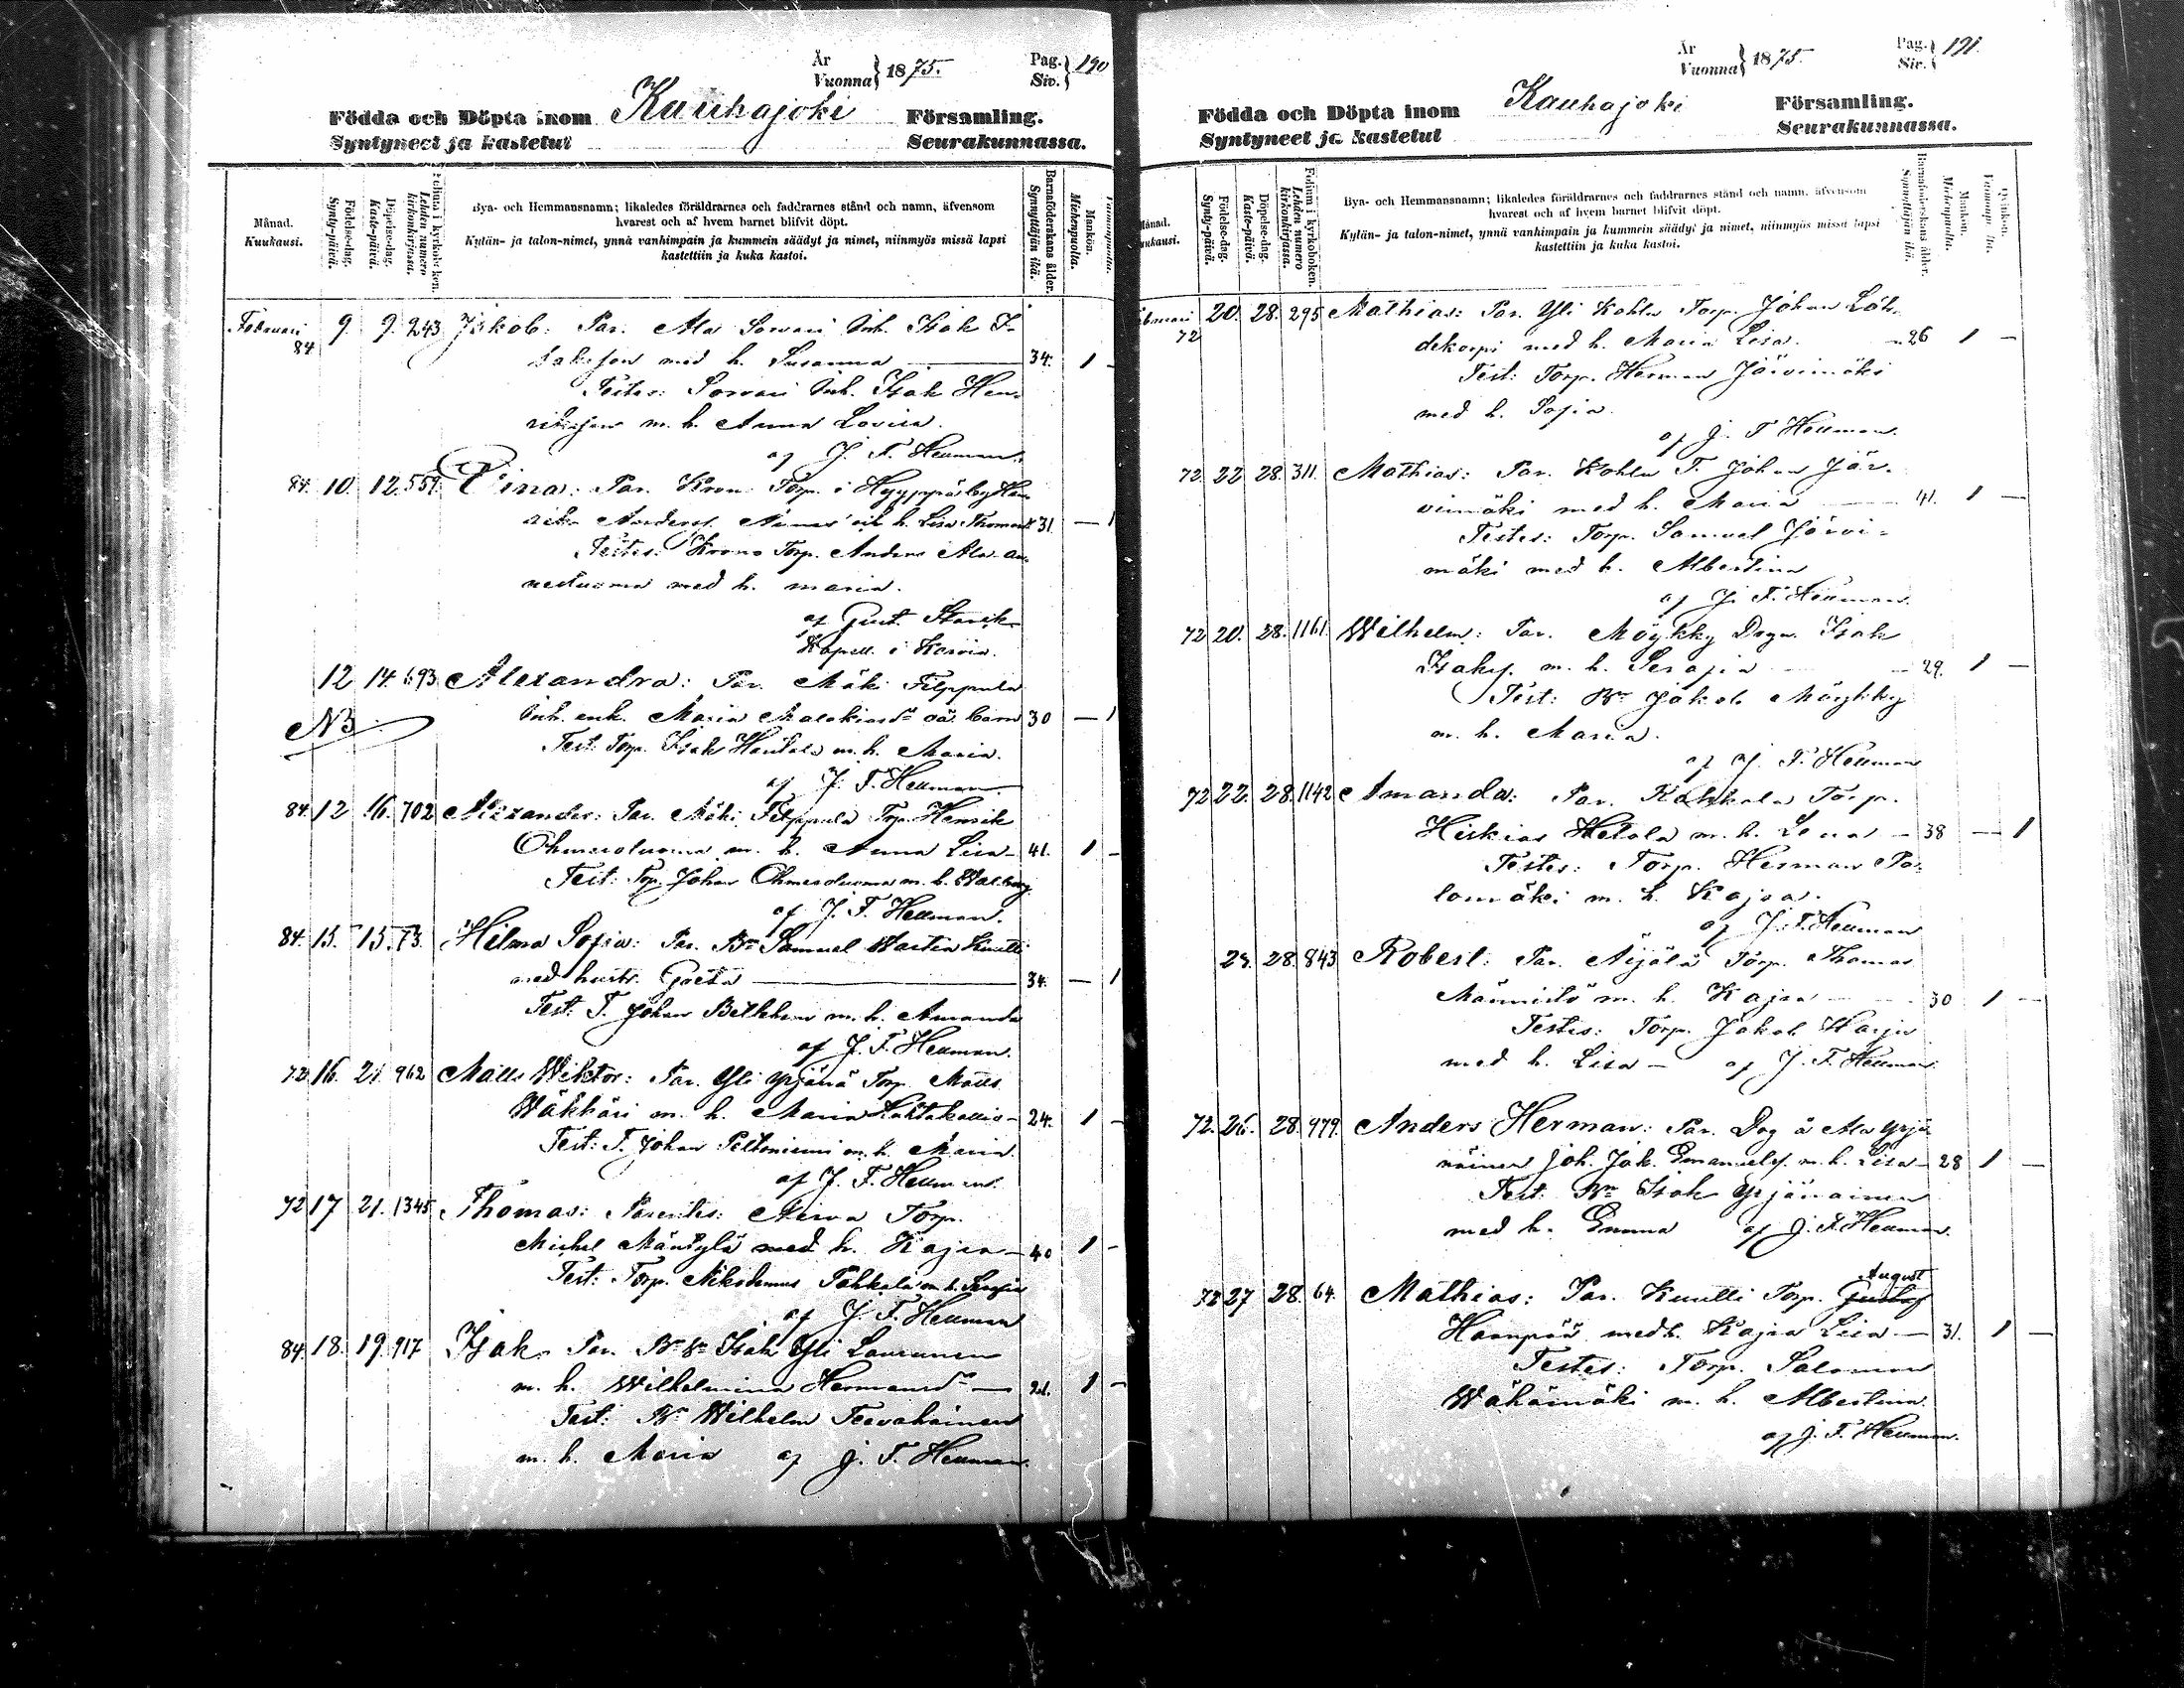 År
Vuonna } 1875.
Pag.
Siv. } 190
Födda och Döpta inom Kauhajoki Församling.
Syntyneet ja kastetut Seurakunnassa.
Månad. Kuukausi.
Födelse-dag. Synty-päivä.
Döpelse-dag. Kaste-päivä.
Folium i kyrkoboken. Lehden numero kirkonkirjassa.
Bya- och Hemmansnamn; likaledes föräldrarnes och faddrarnes stånd och namn, äfvensom
hvarest och af hvem barnet blifvit döpt.
Kylän- ja talon-nimet, ynnä vanhimpain ja kummein säädyt ja nimet, niinmyös missä lapsi
kastettiin ja kuka kastoi.
Barnaföderskans ålder. Synnyttäjän ikä.
Mankön. Miehenpuolta.
Februari 9. 9. 243 Jakob: Par. Ala Sorvari Inh. Isak I-
84 saksson med h. Susanna — 34. 1 -
Testes: Sorvari Inh. Isak Hen-
riksson m. h. Anna Lovisa.
af J. F. Hellman.
84. 10. 12. 559. Eina: Par. Krono Torp. i Hyyppä by Hen
rik Anderss. h. Lisa Thomasd 31. — 1
Testes: Krono Torp. Anders Ala-
med h. maria.
af Gust.
Kapell. i Karvia.
12 14. 693 Alexandra: Par. Mäki Filppula
NB Inh. enk. Maria Malakiasdr oä. barn 30 — 1
Test. Torp. Isak Hautala m. h. Maria.
af J. F. Hellman.
84. 12 16. 702 Alexander: Par. Mäki Filppula Torp. Henrik
Ohmeroluoma m. h. Anna Lisa — 41. 1 -
Test: Torp. Johan Ohmeroluoma m. h. Walborg
af J. F. Hellman.
84. 15. 15. 73. Hilma Sofia: Par. Bn Samuel Wartia Knuttli
med hustr. Greta — 34. — 1
Test. T. Johan Bethlehem m. h. Amanda
af J. F. Hellman.
72. 16. 21. 962 Matts Wiktor: Par. Yli Yrjänä Torp. Matts
Wäkkäri m. h. Maria Hautakallio — 24. 1 -
Test: T. Johan Peltoniemi m. h. Maria.
af J. F. Hellman.
72 17 21. 1345 Thomas: Parentes: Nirva Torp.
Michel Mäntylä med h. Kajsa — 40 1 -
Test: Torp. Nikodemus Pahkala m. h. Serafia
af J. F. Hellman
84. 18. 19. 917 Isak. Par. Bn Sn Isak Yli Laurunen
m. h. Wilhelmina Hermansdr — 21. 1 -
Test: Bn Wilhelm Teevahainen
m. h. Maria af J. F. Hellman.
År
Vuonna } 1875.
Pag.
Siv. } 191.
Födda och Döpta inom Kauhajoki Församling.
Syntyneet ja kastetut Seurakunnassa.
Födelse-dag. Synty-päivä.
Döpelse-dag. Kaste-päivä.
Folium i kyrkoboken. Lehden numero kirkonkirjassa.
Bya- och Hemmansnamn; likaledes föräldrarnes och faddrarnes stånd och namn, äfvensom
hvarest och af hvem barnet blifvit döpt.
Kylän- ja talon-nimet, ynnä vanhimpain ja kummein säädyt ja nimet, niinmyös missä lapsi
kastettiin ja kuka kastoi.
Barnaföderskans ålder. Synnyttäjän ikä.
Mankön. Miehenpuolta.
Qvinkön. Vaimonpuolta.
Februari 20. 28. 295 Mathias: Par. Yli Kohlu Torp. Johan Läh-
72 dekorpi med h. Maria Lisa. — 26 1 —
Test: Torp. Herman Järvimäki
med h. Sofia.
af J. F Hellman.
72 22 28. 311. Mathias: Par. Kohlu T. Johan Jär-
vimäki med h. Maria — 41. 1 —
Testes: Torp. Samuel Järvi-
mäki med h. Albertina
af J. F. Hellman.
72 20. 28. 1161. Wilhelm: Par. Möykky Drgn. Isak
Isakss. m. h. Serafia — 29. 1 —
Test: Bn Jakob Möykky
m. h. Maria.
af J. F. Hellman
72 22. 28. 1142 Amanda: Par. Kahkola Torp.
Heskias Hietala m. h. Lena — 38 — 1
Testes: Torp. Herman Pa-
lomäki m. h. Kajsa.
af J. F. Hellman
28. 843 Robert: Par. Äijälä Torp. Thomas
Männistö m. h. Kajsa — 30 1 —
Testes: Torp. Jakob Harju
med h. Lisa — af J. F. Hellman.
72. 26. 28. 979. Anders Herman: Par. Drg å Ala Yrjä
näinen Joh. Jak. Emanuelss. m. h. Lisa — 28 1 —
Test. Bn Isak Yrjänainen
med h. Emma af J. F. Hellman.
August
72 27 28. 64. Mathias: Par. Knuttli Torp. Gustaf
Haanpää med h. Kajsa Lisa — 31. 1 —
Testes: Torp. Salomon
Wähämäki m. h. Albertina.
af J. F. Hellman.